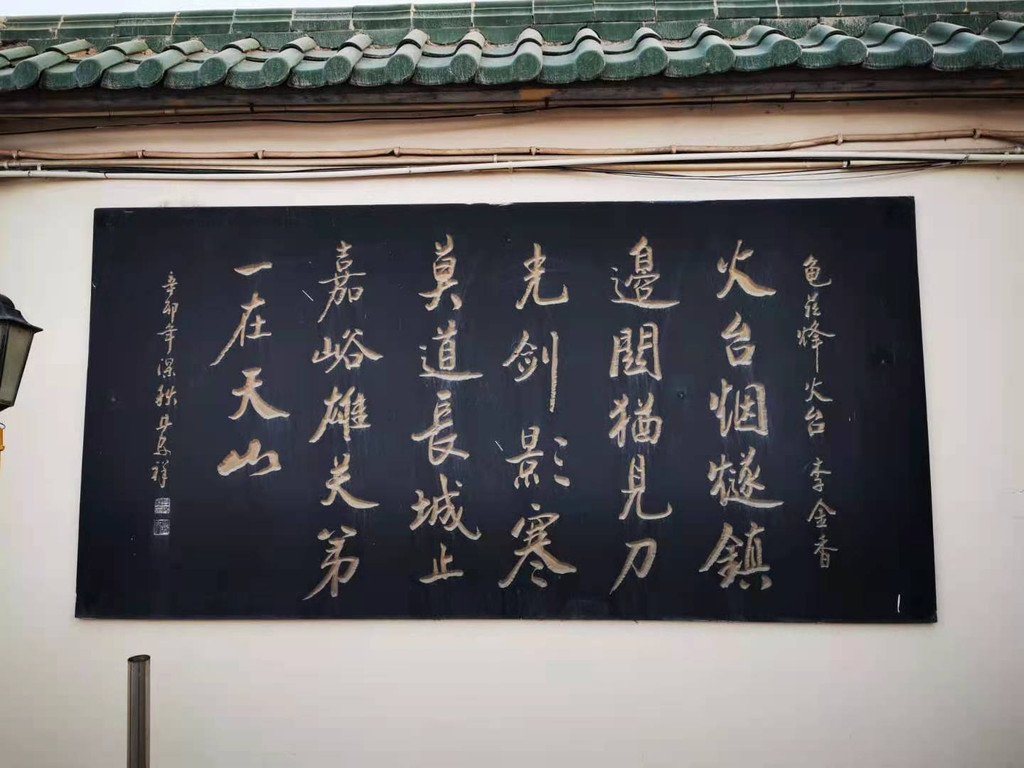 龟兹烽火台 李金香
火台烟燧鎮
邊関猶見刀
光剑影寒
莫道長城止
嘉峪雄关第
一在天山
辛卯年深秋